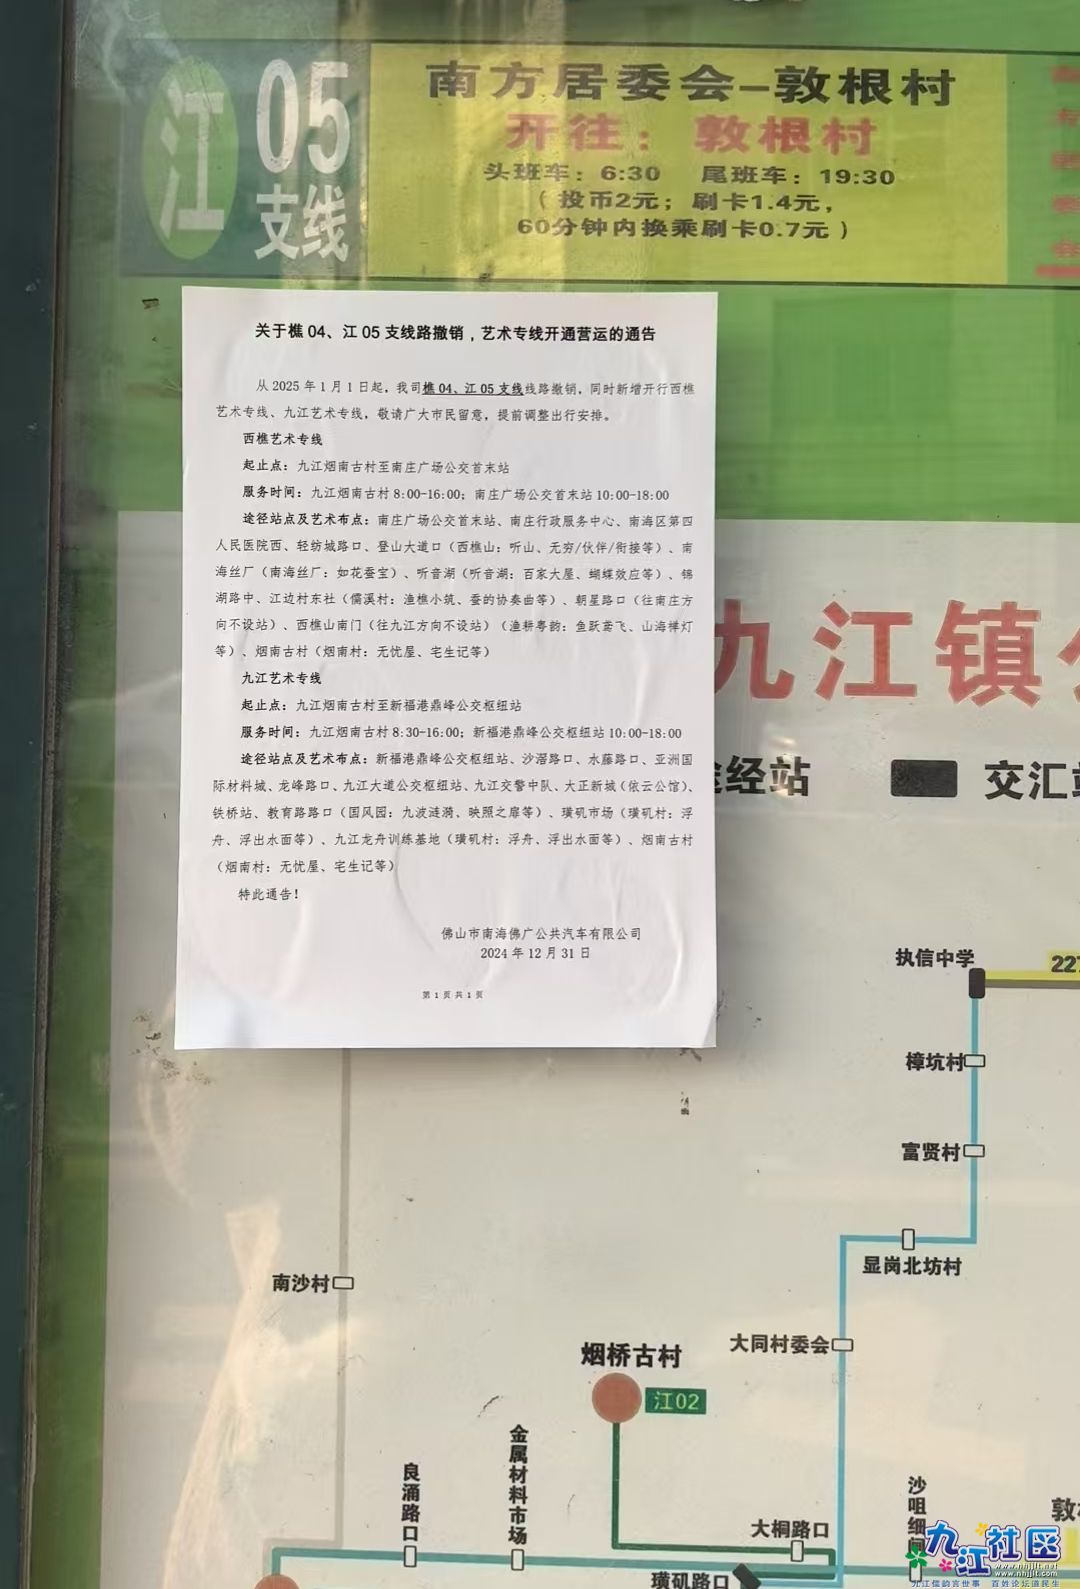 江
05
支线
南方居委会—敦根村
开往：敦根村
头班车：6:30 尾班车：19:30
（投币2元；刷卡1.4元，
60分钟内换乘刷卡0.7元）
关于樵 04、江 05 支线路撤销，艺术专线开通营运的通告
从 2025 年 1 月 1 日起，我司樵 04、江 05 支线线路撤销，同时新增开行西樵
艺术专线、九江艺术专线，敬请广大市民留意，提前调整出行安排。
西樵艺术专线
起止点：九江烟南古村至南庄广场公交首末站
服务时间：九江烟南古村 8:00-16:00；南庄广场公交首末站 10:00-18:00
途径站点及艺术布点：南庄广场公交首末站、南庄行政服务中心、南海区第四
人民医院西、轻纺城路口、登山大道口（西樵山：听山、无穷/伙伴/衔接等）、南
海丝厂（南海丝厂：如花蚕宝）、听音湖（听音湖：百家大屋、蝴蝶效应等）、锦
湖路中、江边村东社（儒溪村：渔樵小筑、蚕的协奏曲等）、朝星路口（往南庄方
向不设站）、西樵山南门（往九江方向不设站）（渔耕粤韵：鱼跃鸢飞、山海禅灯
等）、烟南古村（烟南村：无忧屋、宅生记等）
九江艺术专线
起止点：九江烟南古村至新福港鼎峰公交枢纽站
服务时间：九江烟南古村 8:30-16:00；新福港鼎峰公交枢纽站 10:00-18:00
途径站点及艺术布点：新福港鼎峰公交枢纽站、沙滘路口、水藤路口、亚洲国
际材料城、龙峰路口、九江大道公交枢纽站、九江交警中队、大正新城（依云公馆）、
铁桥站、教育路路口（国风园：九波涟漪、映照之扉等）、璜矶市场（璜矶村：浮
舟、浮出水面等）、九江龙舟训练基地（璜矶村：浮舟、浮出水面等）、烟南古村
（烟南村：无忧屋、宅生记等）
特此通告！
佛山市南海佛广公共汽车有限公司
2024 年 12 月 31 日
第 1 页 共 1 页
九江镇
途经站
交汇站
执信中学
227
樟坑村
富贤村
显岗北坊村
南沙村
大同村委会
烟桥古村
江02
金属材料市场
良涌路口
沙咀细
大桐路口
敦根
璜矶路口
九江社区
www.nhjjlt.net
九江儒韵言世事 百姓论坛道民生